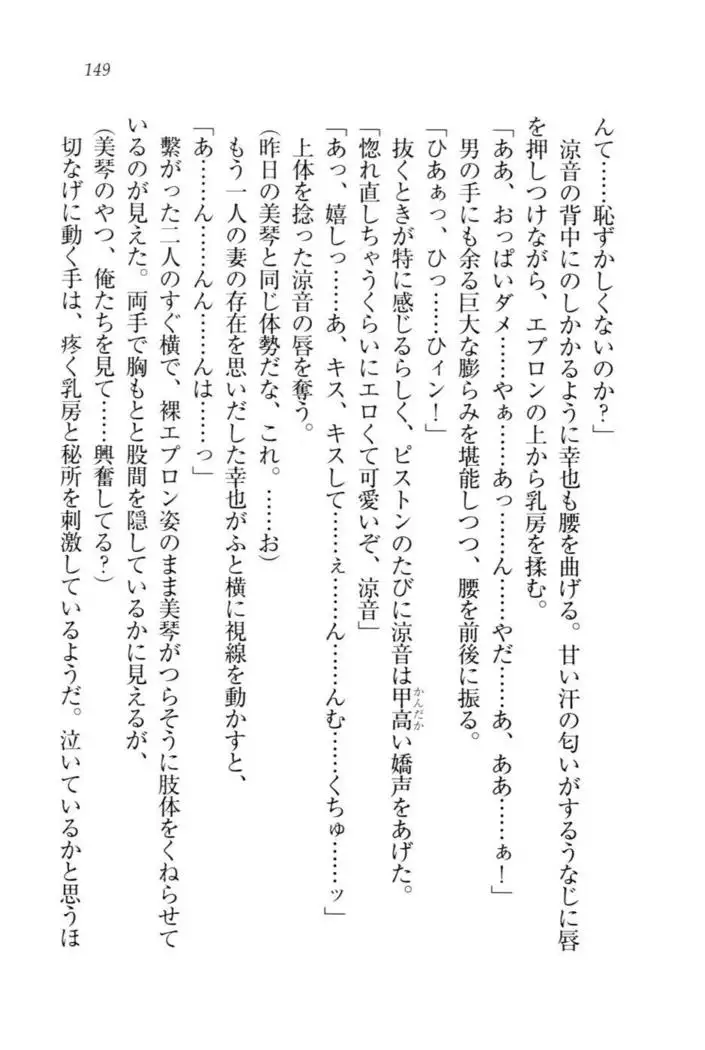 149
んて……恥ずかしくないのか？」
　涼音の背中にのしかかるように幸也も腰を曲げる。甘い汗の匂いがするうなじに唇
を押しつけながら、エプロンの上から乳房を揉む。
「ああ、おっぱいダメ……やぁ……あっ……ん……やだ……あ、ああ……ぁ！」
　男の手にも余る巨大な膨らみを堪能しつつ、腰を前後に振る。
「ひあぁっ、ひっ……ひィン！」
　抜くときが特に感じるらしく、ピストンのたびに涼音は甲高い嬌声をあげた。
かんだか
「惚れ直しちゃうくらいにエロくて可愛いぞ、涼音」
「あっ、嬉しっ……あ、キス、キスして……ぇ……ん……んむ……くちゅ……ッ」
　上体を捻った涼音の唇を奪う。
（昨日の美琴と同じ体勢だな、これ。……お）
　もう一人の妻の存在を思いだした幸也がふと横に視線を動かすと、
「あ……ん……んん……んは……っ」
　繋がった二人のすぐ横で、裸エプロン姿のまま美琴がつらそうに肢体をくねらせて
いるのが見えた。両手で胸もとと股間を隠しているかに見えるが、
（美琴のやつ、俺たちを見て……興奮してる？）
　切なげに動く手は、疼く乳房と秘所を刺激しているようだ。泣いているかと思うほ